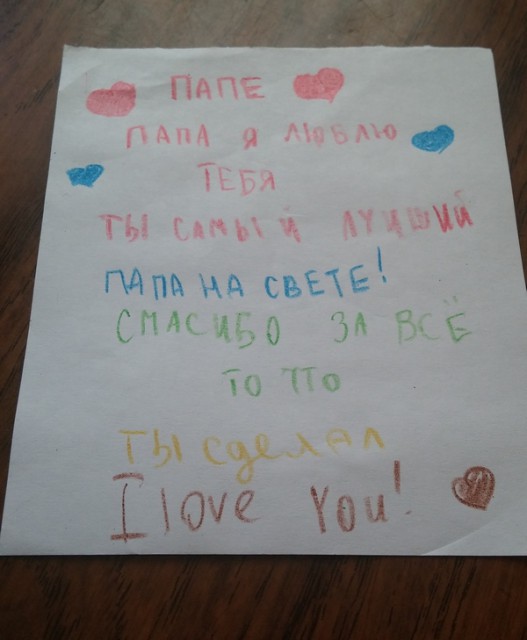 ПАПЕ
ПАПА Я ЛЮБЛЮ
ТЕБЯ
ТЫ САМЫЙ ЛУЦШИЙ
ПАПА НА СВЕТЕ!
СПАСИБО ЗА ВСЁ
ТО ЧТО
ТЫ сделал
I love You!